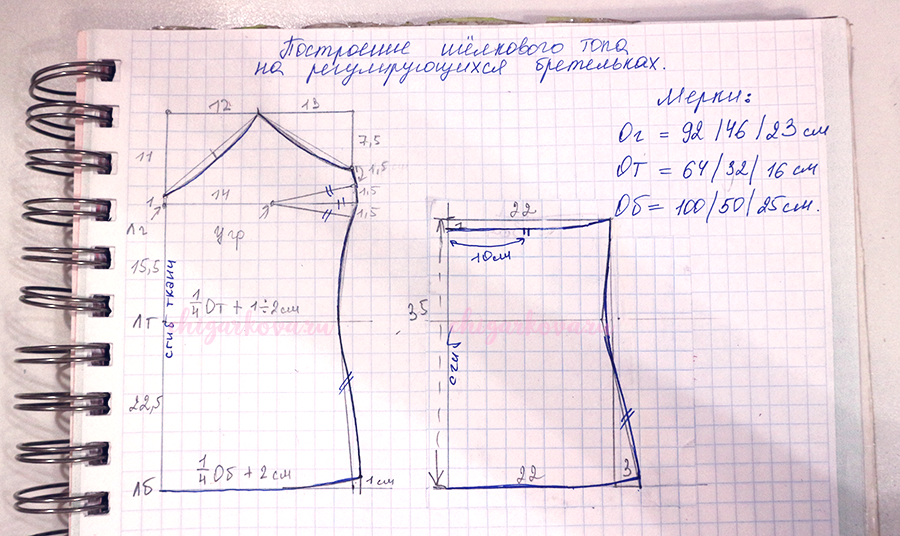 Построение шёлкового топа
на регулирующихся бретельках.
Мерки:
Ог = 92/46/23 см
От = 64/32/16 см
Об = 100/50/25 см.
12 13
7,5
11
1,5
1 14 1,5
1,5
Лг Угр
15,5
сгиб ткани
1/4 От + 1÷2 см
Лт
22,5
1/4 Об + 2 см
Лб 1 см
22
1
10 см
35
сгиб
22 3
higarkova.ru
higarkova.ru